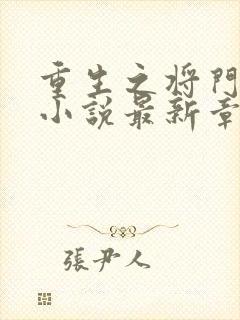 重生之将門
小説最新章
張尹人